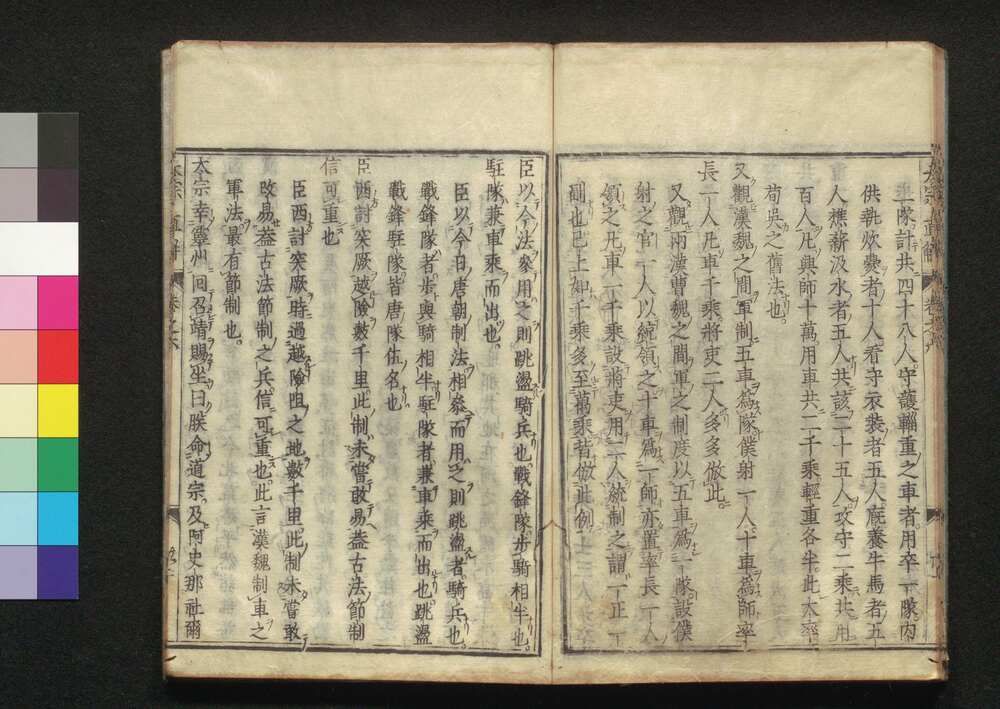 士一隊計共四十八人守護輜重之車者用卒一隊内
供執炊爨者十人看守衣裝者五人廐養牛馬者五
人樵薪汲水者五人共該二十五人攻守二乘共用
百人凡興師十萬用車共二千乘輕重各半此大率
荀吳之舊法也
又觀漢魏之間軍制五車爲隊僕射一人十車爲師率
長一人凡車千乘將吏二人多多倣此
又觀兩漢曹魏之間軍之制度以五車爲一隊設僕
射之官一人以統領之十車爲一師亦置率長一人
領之凡車一千乘設將吏用二人統制之謂一正一
副也已上如千乘多至萬乘皆倣此例
臣以今法參用之則跳盪騎兵也戰鋒隊步騎相半也
駐隊兼車乘而出也
臣以今日唐朝制法相參而用之則跳盪者騎兵也
戰鋒隊者步與騎相半駐隊者兼車乘而出也跳盪
戰鋒駐隊皆唐隊伍名也
臣西討突厥越險數千里此制未嘗敢易蓋古法節制
信可重也
臣西討突厥時過越險阻之地數千里此制未嘗敢
改易蓋古法節制之兵信可重也此言漢魏制車之
軍法最有節制也
太宗幸靈州回召靖賜坐曰朕命道宗及阿史那社爾